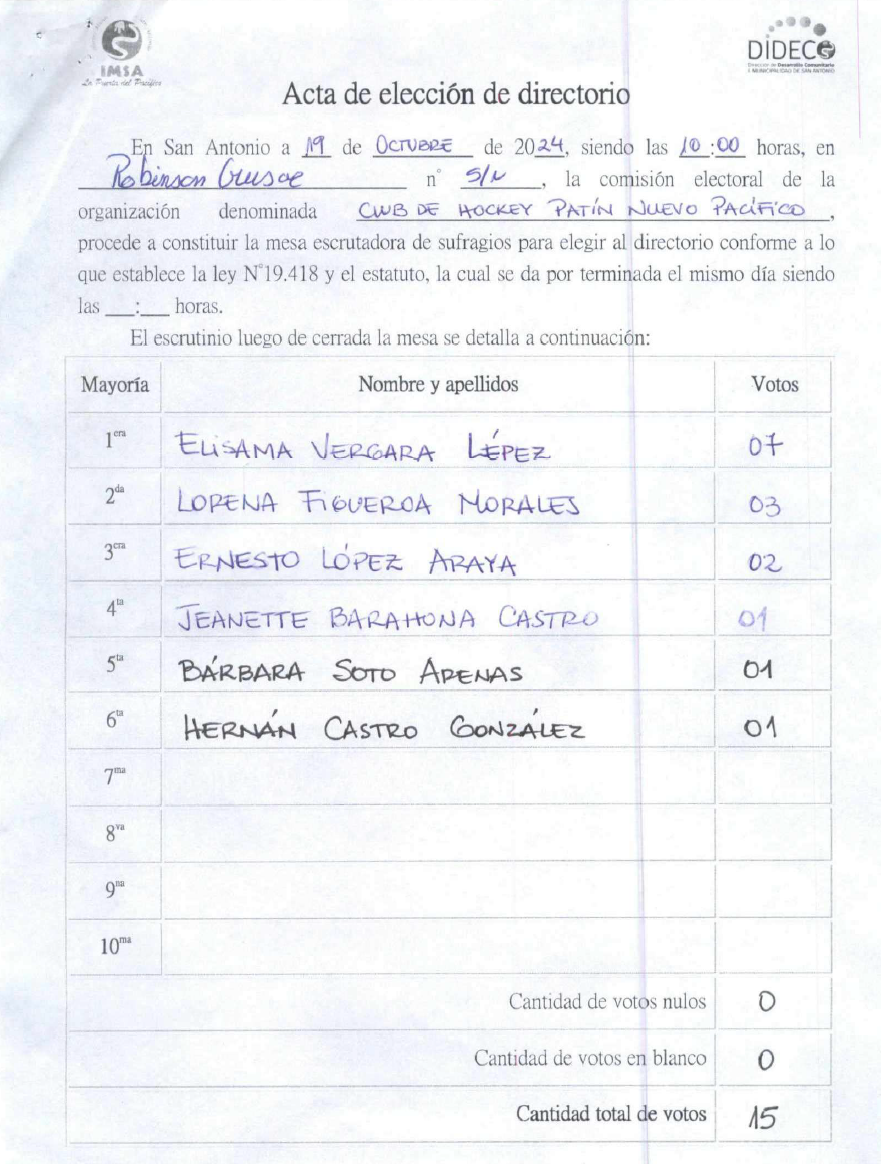 IMSA
La Puerta del Pacífico
DIDECO
Dirección de Desarrollo Comunitario
I. MUNICIPALIDAD DE SAN ANTONIO
Acta de elección de directorio
En San Antonio a 19 de OCTUBRE de 2024, siendo las 10:00 horas, en
Robinson Crusoe n° S/N, la comisión electoral de la
organización denominada CLUB DE HOCKEY PATÍN NUEVO PACÍFICO,
procede a constituir la mesa escrutadora de sufragios para elegir al directorio conforme a lo
que establece la ley N°19.418 y el estatuto, la cual se da por terminada el mismo día siendo
las ___:___ horas.
El escrutinio luego de cerrada la mesa se detalla a continuación:
Mayoría Nombre y apellidos Votos
1era ELISAMA VERGARA LÉPEZ 07
2da LORENA FIGUEROA MORALES 03
3era ERNESTO LÓPEZ ARAYA 02
4ta JEANETTE BARAHONA CASTRO 01
5ta BÁRBARA SOTO ARENAS 01
6ta HERNÁN CASTRO GONZÁLEZ 01
7ma
8va
9na
10ma
Cantidad de votos nulos 0
Cantidad de votos en blanco 0
Cantidad total de votos 15